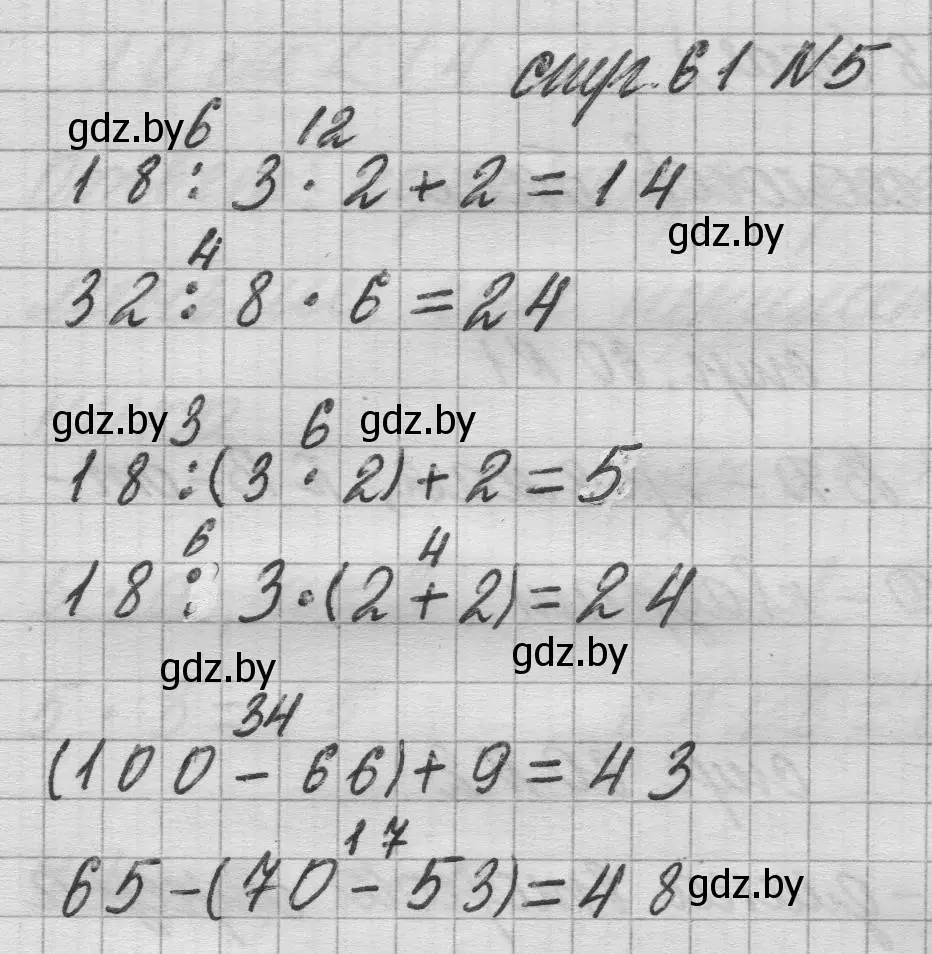 стр. 61 N5
gdz.by 6 12
18 : 3 · 2 + 2 = 14
gdz.by
4
32 : 8 · 6 = 24
gdz.by 3 6 gdz.by
18 : (3 · 2) + 2 = 5
6 4
18 : 3 · (2 + 2) = 24
gdz.by gdz.by
34
(100 - 66) + 9 = 43
17
65 - (70 - 53) = 48 gdz.by